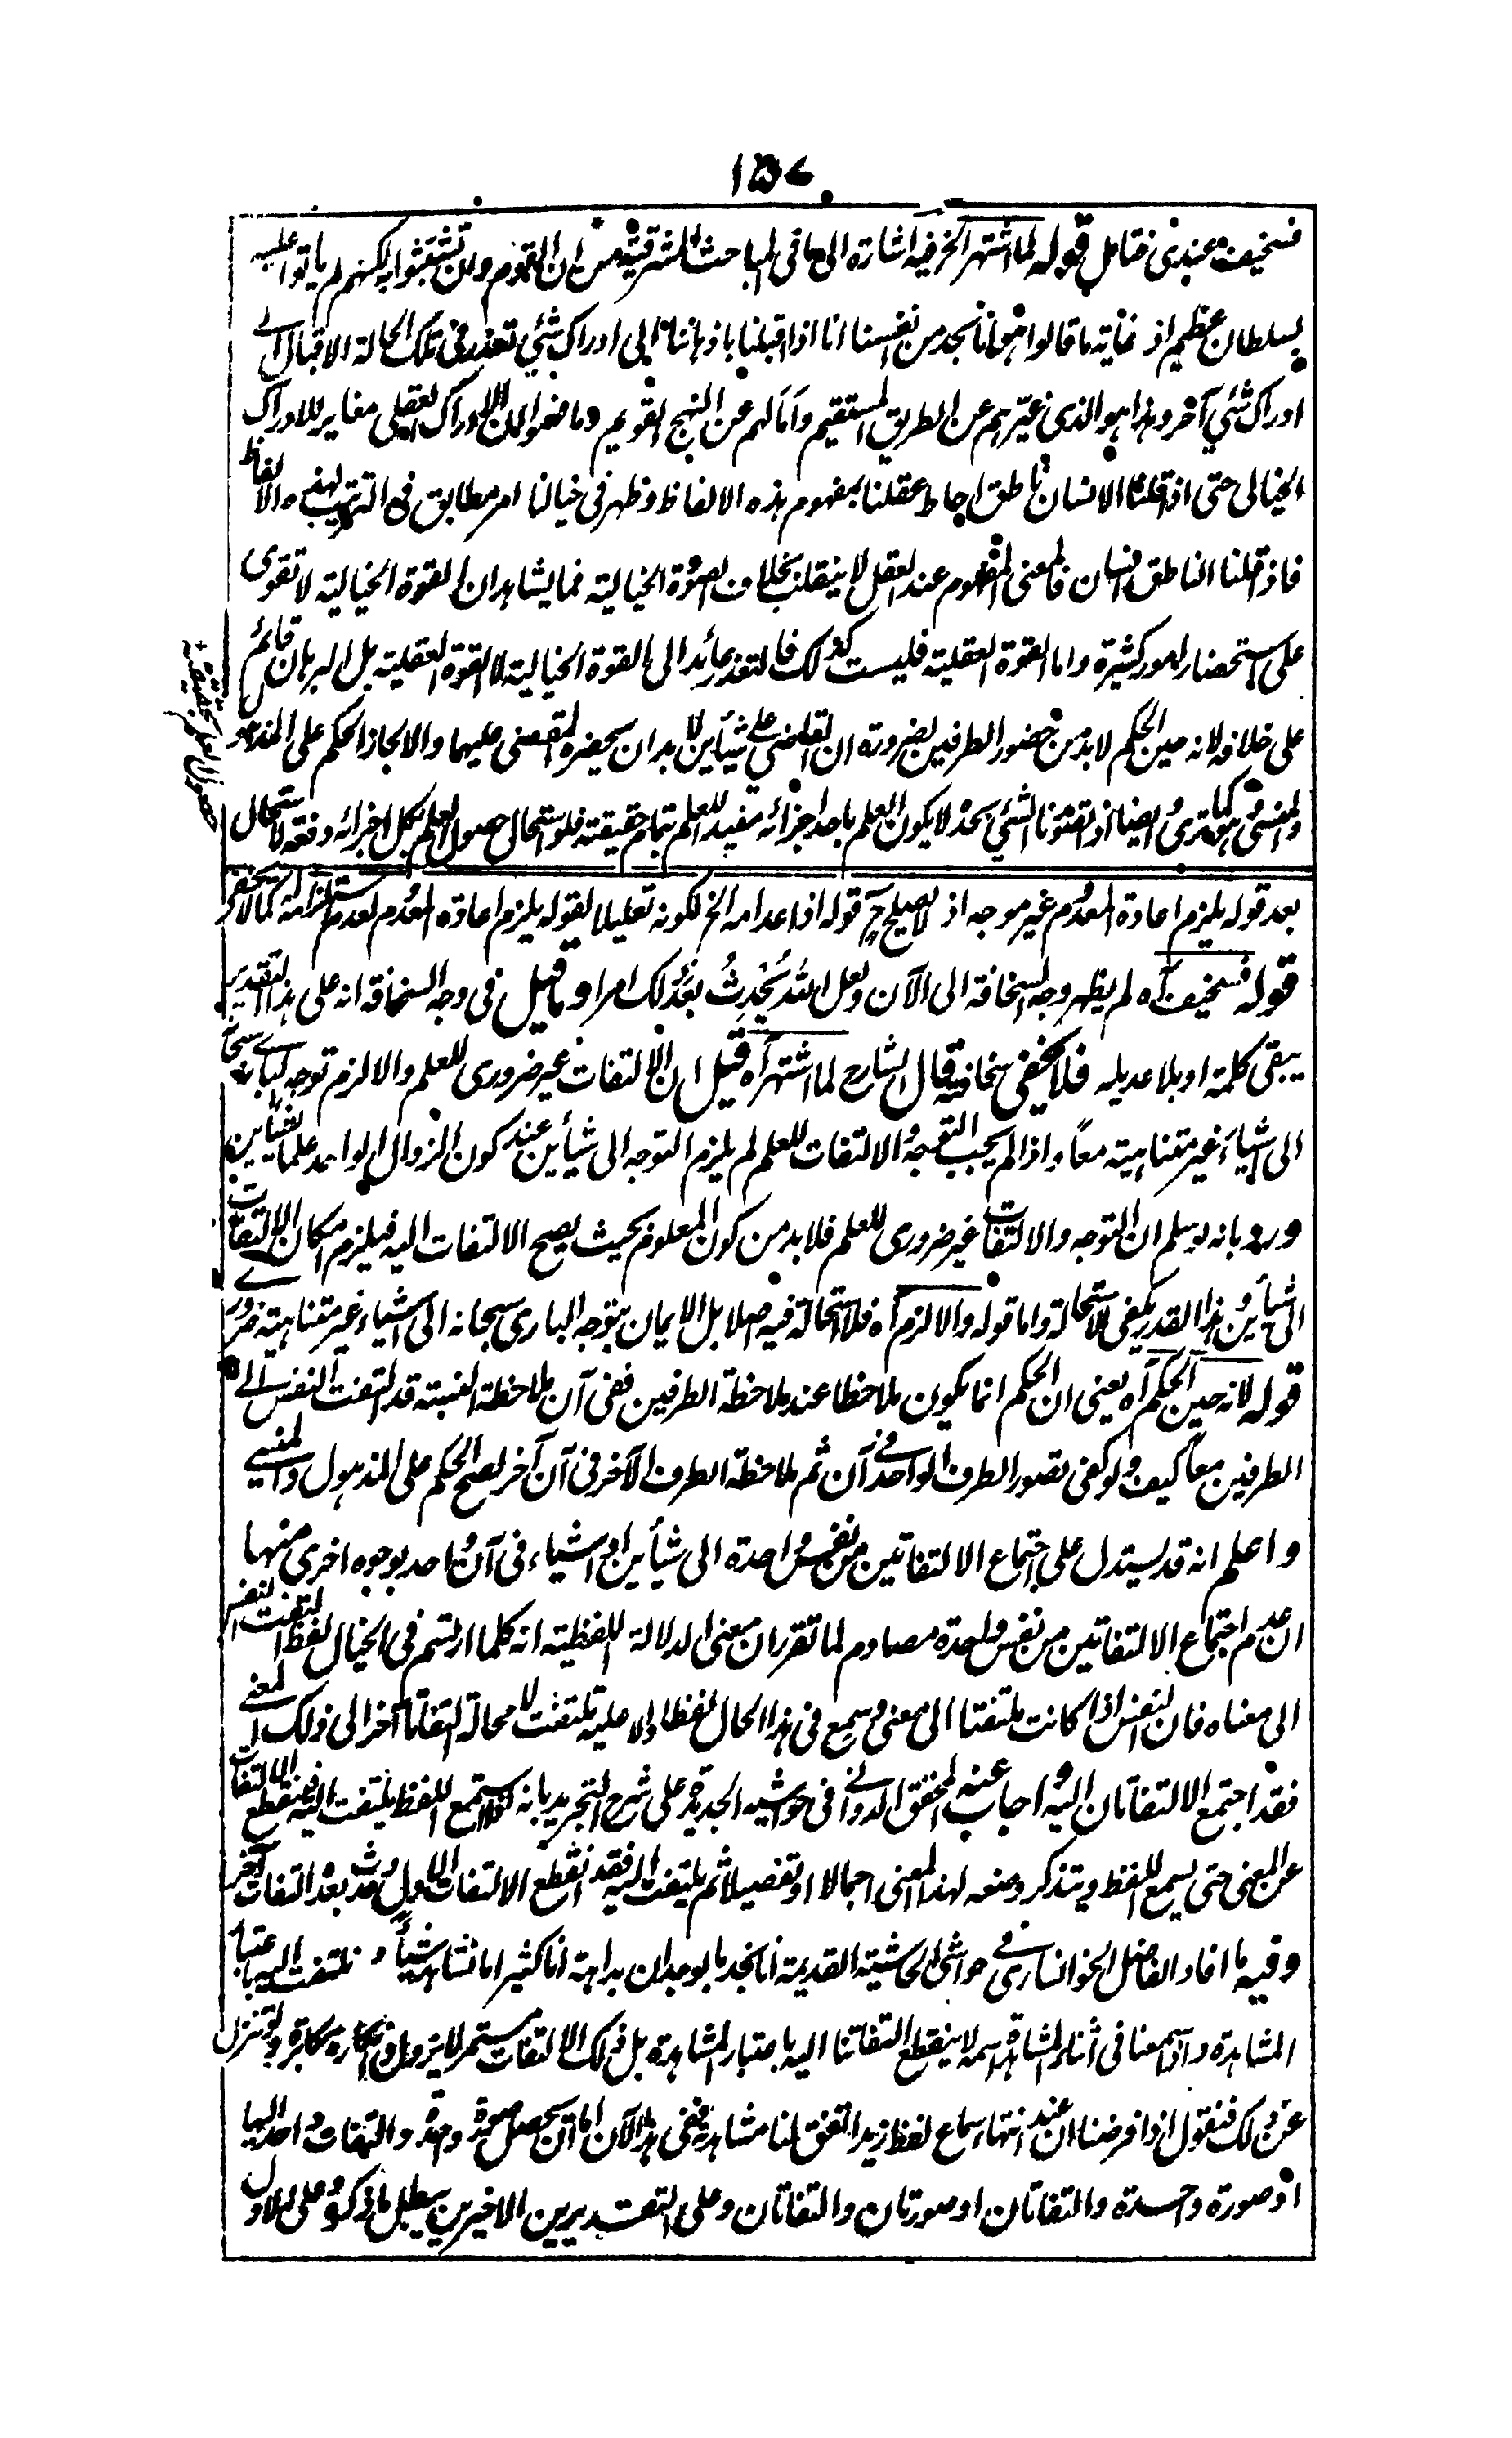 ١٥٧
فسخيف عندى فتامل قوله لما اشتهر الخ فيه اشارة الى ما فى المباحث المشرقية من ان القوم وان تشبثوا به لكنهم لم ياتوا عليه
بسلطان عظيم اذ غاية ما قالوا هو انا نجد من انفسنا انا اذا اقبلنا باذهاننا الى ادراك شئي تعذر فى تلك الحالة الاقبال الے
ادراك شئي آخر وهذا هو الذى غيّرهم عن الطريق المستقيم وامالهم عن النهج القويم وما فهموا ان الادراك العقلى مغاير للادراك
الخيالى حتى اذ قلنا الانسان ناطق احاط عقلنا بمفهوم هذه الالفاظ وظهر فى خيالنا امر مطابق فى الترتيب لهذه الالفاظ
فاذ قلنا الناطق انسان فالمعنى المفهوم عند العقل لا ينقلب بخلاف الصورة الخيالية فما يشاهد ان القوة الخيالية لا تقوى
على استحضار امور كثيرة واما القوة العقلية فليست كذلك فالتعذر عائد الى القوة الخيالية لا القوة العقلية بل البرهان قائم
على خلافه لانه حين الحكم لابد من حضور الطرفين لضرورة ان القاضى على شيأين لابد ان يحضره المقضى عليهما والا لجاز الحكم على المذهول
والمنسى هو كما ترى وايضا اذ تصورنا الشئي بحده لا يكون العلم باحد اجزائه مفيد للعلم بتمام حقيقته فلو استحال حصول العلم بكل اجزائه دفعة لاستحال
حصول العلم بحقيقته
بعد قوله يلزم اعادة المعدوم غير موجه اذ لا يصلح ح قوله اذا عدامه الخ لكونه تعليلا لقوله يلزم اعادة المعدوم لعدم استلزامه كما لا يخفى
قوله فسخيف آه لم يظهر وجه السخافة الى الآن ولعل الله يُحْدِثُ بعد ذلك امرا وما قيل فى وجه السخافة انه على هذا التقدير
يبقى كلمة او بلا عديله فلا يخفى سخافته قال الشارح لما اشتهر آه قيل ان الالتفات غير ضرورى للعلم والا لزم توجه البارے سبحانه
الى اشياء غير متناهية معًا واذا لم يجب التوجه والالتفات للعلم لم يلزم التوجه الى شيأين عند كون الزوال الواحد علما بشيأين
ورد بانه لو سلم ان التوجه والالتفات غير ضرورى للعلم فلابد من كون المعلوم بحيث يصح الالتفات اليه فيلزم امكان الالتفات
الى شيأين وهذا القدر يكفى لاستحالة واما قوله والا لزم آه فلا استحالة فيه اصلا بل الايمان بتوجه البارى سبحانه الى اشياء غير متناهية ضرورے
قوله لانه حين الحكم آه يعنى ان الحكم انما يكون ملاحظا عند ملاحظة الطرفين ففى آن ملاحظة النسبة قد التفت النفس الے
الطرفين معا كيف ولو كفى تصور الطرف الواحد فے آن ثم ملاحظة الطرف الآخر فى آن آخر لصح الحكم على المذهول والمنسے
واعلم انه قد يستدل على اجتماع الالتفاتين من نفس واحدة الى شيأين او اشياء فى آن واحد بوجوه اخرى منها
ان عدم اجتماع الالتفاتين من نفس واحدة مصادم لما تقرر ان معنى الدلالة اللفظية انه كلما ارتسم فى الخيال لفظ التفت النفس
الى معناه فان النفس اذا كانت ملتفتا الى معنى وسمع فى هذا الحال لفظا دالا عليه تلتفت لا محالة التفاتا آخر الى ذلك المعنے
فقد اجتمع الالتفاتان اليه واجاب عنه المحقق الدوانے فى حواشيه الجديدة على شرح التجريد بانه اذا استمع اللفظ يلتفت اليه فينقطع الالتفات
عن المعنى حتى يسمع اللفظ ويتذكر وضعه لهذا المعنى اجمالا او تفصيلا ثم يلتفت اليه فقد انقطع الالتفات الاول وحدث بعده التفات آخر
وفيه ما افاد الفاضل الخوانسارى فے حواشى الحاشية القديمة انا نجد بالوجدان بداهة انا كثيرا ما نشاهد شيأ ونلتفت اليه باعتبار
المشاهدة واذا سمعنا فى اثناء المشاهدة اسمه لا ينقطع التفاتنا اليه باعتبار المشاهدة بل ذلك الالتفات مستمر لا يزول وانكاره مكابرة ولو تنزل
عن ذلك فنقول اذا فرضنا ان عند انتهاء سماع لفظ زيد اتفق لنا مشاهدته ففى هذا الآن اما ان يحصل صورة واحدة والتفات واحد اليها
او صورة واحدة والتفاتان او صورتان والتفاتان وعلى التقديرين الاخيرين يبطل ما ذكره وعلى الاول